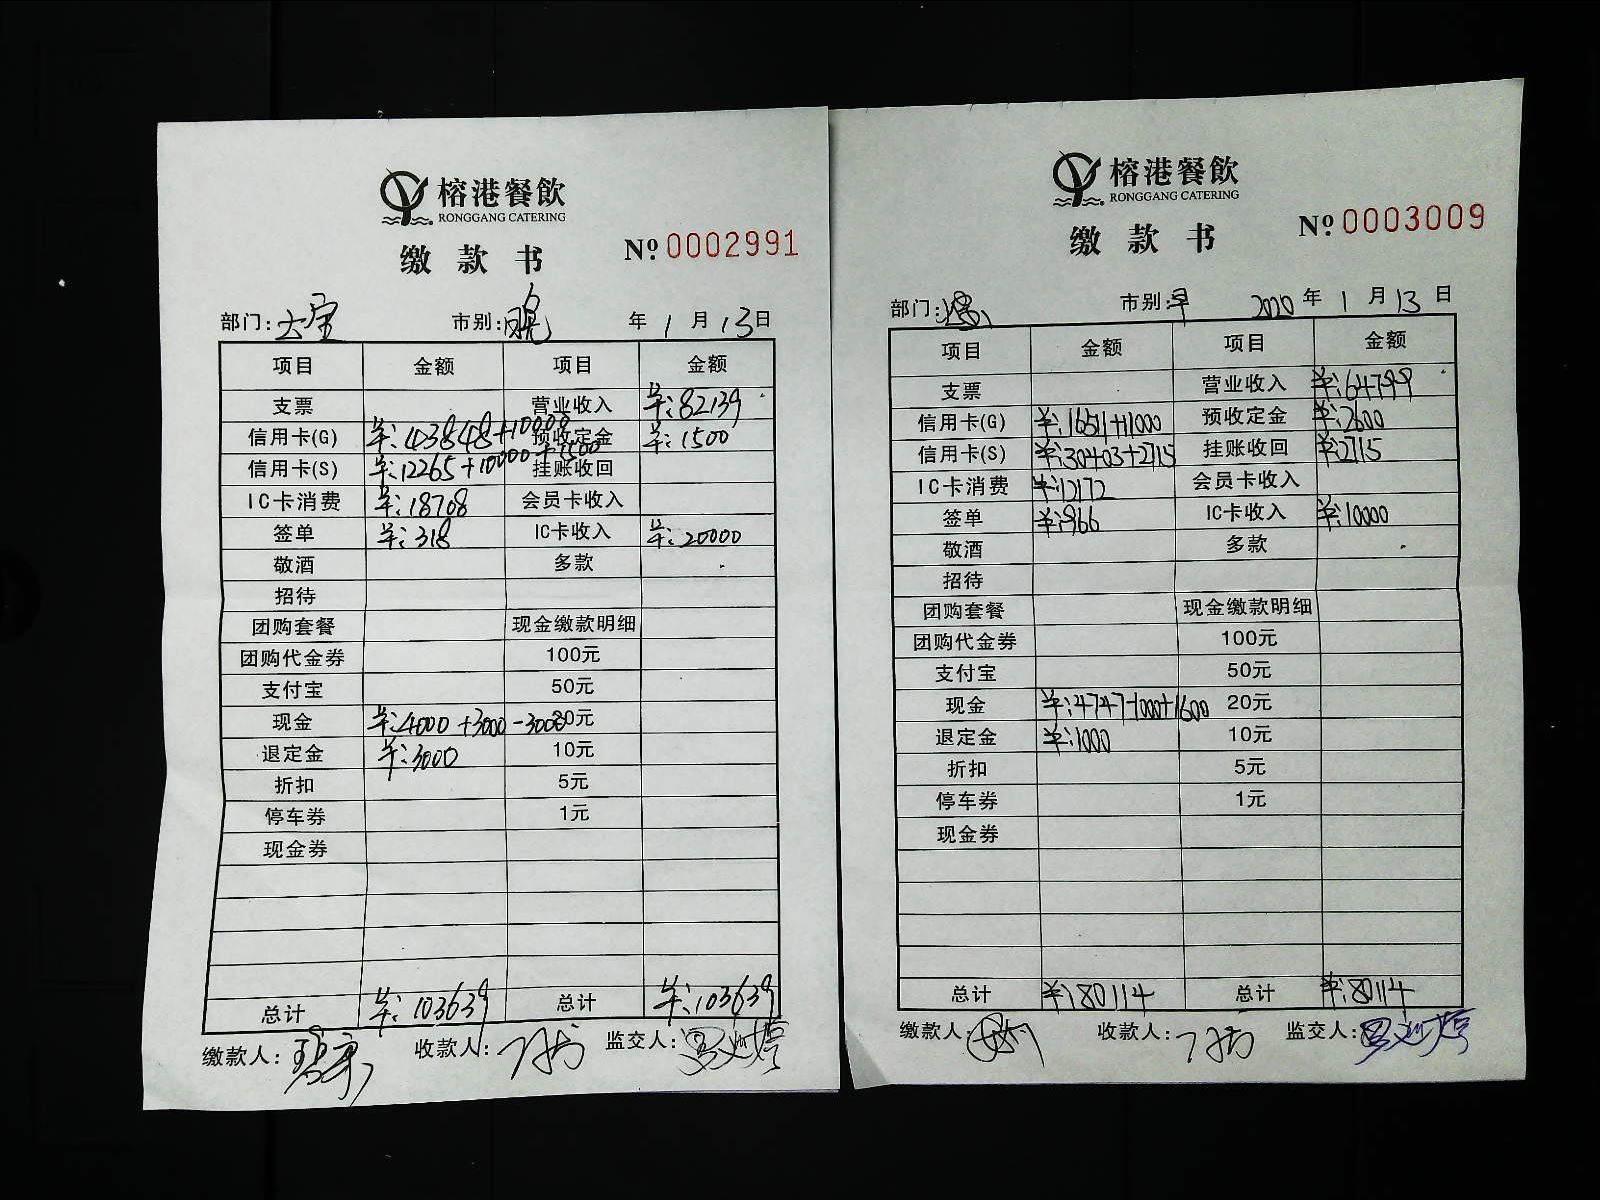 榕港餐飲
RONGGANG CATERING
缴款书 № 0002991
部门: 市别: 年 1 月 13 日
项目 金额 项目 金额
支票 营业收入 羊:82139
信用卡(G) 羊:43848+10000 预收定金 羊:1500
信用卡(S) 羊:12265+10000+1500 挂账收回
IC卡消费 羊:18708 会员卡收入
签单 羊:318 IC卡收入 羊:20000
敬酒 多款
招待
团购套餐 现金缴款明细
团购代金券 100元
支付宝 50元
现金 羊:4000+3000-3000 20元
退定金 羊:3000 10元
折扣 5元
停车券 1元
现金券
总计 羊:103639 总计 羊:103639
缴款人: 收款人: 监交人:
榕港餐飲
RONGGANG CATERING
缴款书 № 0003009
部门: 市别:早 2020 年 1 月 13 日
项目 金额 项目 金额
支票 营业收入 羊:64799
信用卡(G) 羊:16511+11000 预收定金 羊:2600
信用卡(S) 羊:30403+2715 挂账收回 羊:2715
IC卡消费 羊:12172 会员卡收入
签单 羊:966 IC卡收入 羊:10000
敬酒 多款
招待
团购套餐 现金缴款明细
团购代金券 100元
支付宝 50元
现金 羊:4747-1000+1600 20元
退定金 羊:1000 10元
折扣 5元
停车券 1元
现金券
总计 羊:80114 总计 羊:80114
缴款人: 收款人: 监交人: